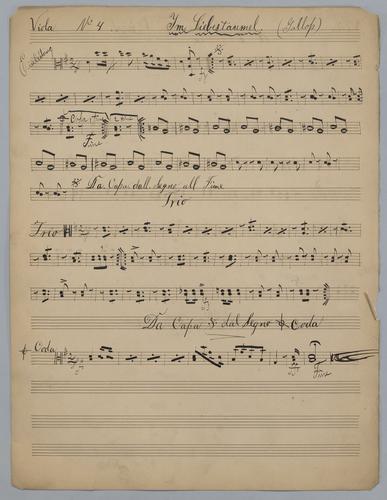 Viola No 4 Im Liebestaumel. (Gallop)
Einleitung
Coda 1ma 2da
Fine
Da Capo dall Segno all Fine
Trio
Trio
Da Capo dal Segno Coda
Coda
Fine